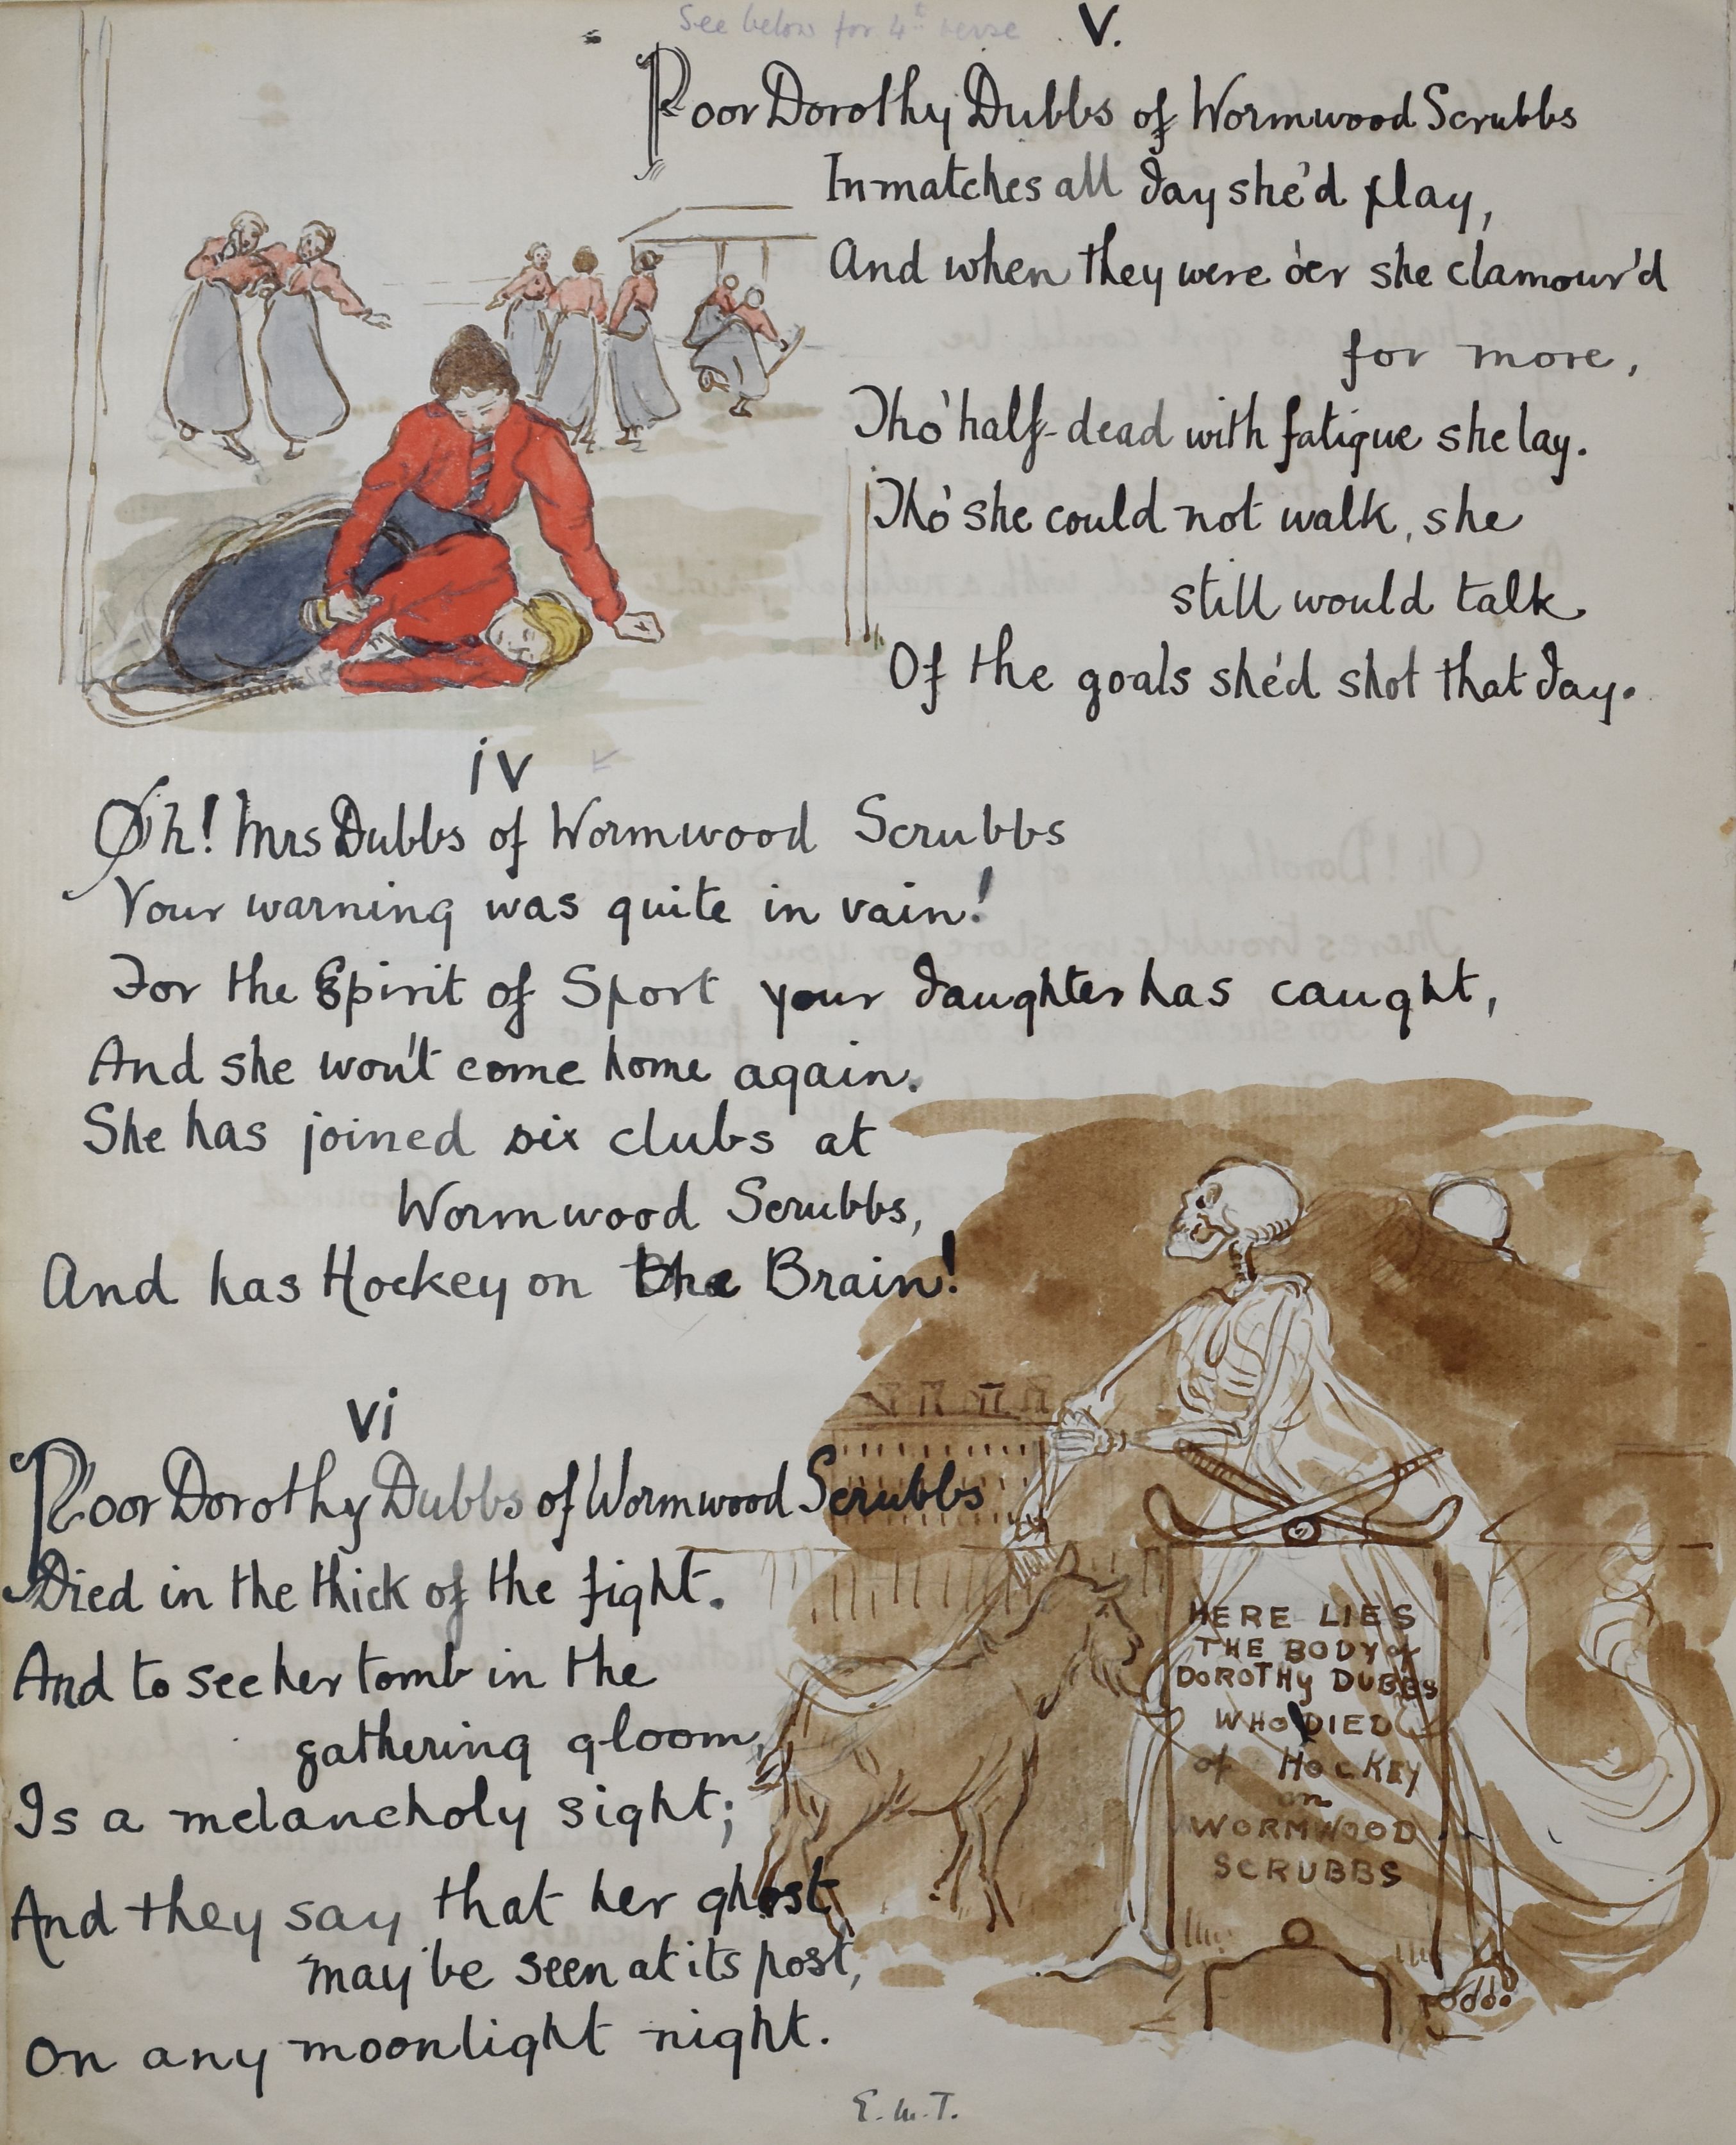 See below for 4th verse
V.
Poor Dorothy Dubbs of Wormwood Scrubbs
In matches all day she'd play,
And when they were o'er she clamour'd
for more,
Tho' half-dead with fatigue she lay.
Tho' she could not walk, she
still would talk
Of the goals she'd shot that day.
iv
Oh! Mrs Dubbs of Wormwood Scrubbs
Your warning was quite in vain!
For the Spirit of Sport your daughter has caught,
And she won't come home again.
She has joined six clubs at
Wormwood Scrubbs,
And has Hockey on the Brain!
vi
Poor Dorothy Dubbs of Wormwood Scrubbs
Died in the thick of the fight.
And to see her tomb in the
gathering gloom,
Is a melancholy sight;
And they say that her ghost
may be seen at its post,
On any moonlight night.
HERE LIES
THE BODY of
DOROTHY DUBBS
WHO DIED
of HOCKEY
on
WORMWOOD
SCRUBBS
E.M.T.